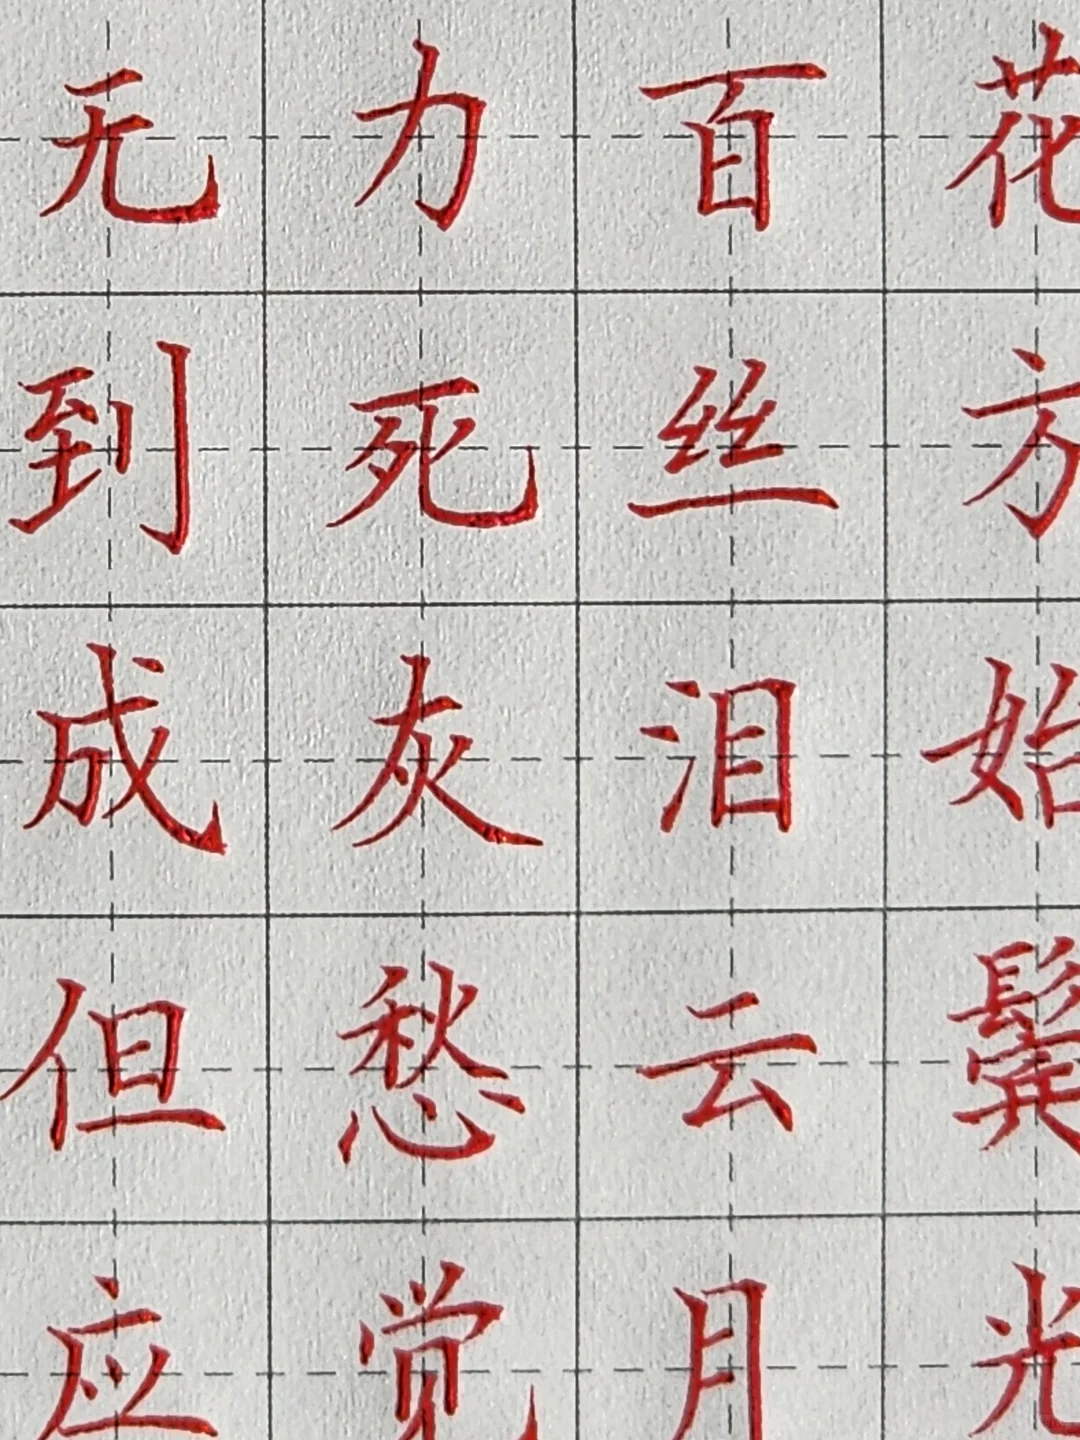 无力百花
到死丝方
成灰泪始
但愁云鬓
应觉月光